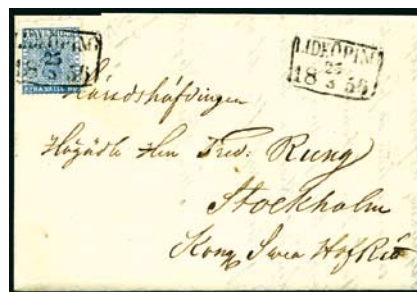 LIDKÖPING
25
18 3 56
FYRA SKILL. BCO.
LIDKÖPING
25
18 3 56
Häradshöfdingen
Högädle Herr Fred: Rung
Stockholm
Kong Swea HofRät